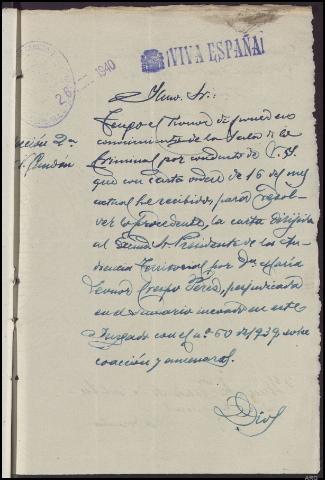 ¡VIVA ESPAÑA!
26 1940
Ilmo. Sr.:
Tengo el honor de poner en
conocimiento de la Sala de lo
Criminal por conducto de V.I.
que con carta orden de 16 del mes
actual he recibido, para resol-
ver lo procedente, la carta dirigida
al Excmo. Sr. Presidente de la Au-
diencia Territorial por Dª María
Leonor Crespo Pérez, perjudicada
en el sumario incoado en este
Juzgado con el nº 60 de 1939 sobre
coacción y amenazas.
Dios
cción 2ª